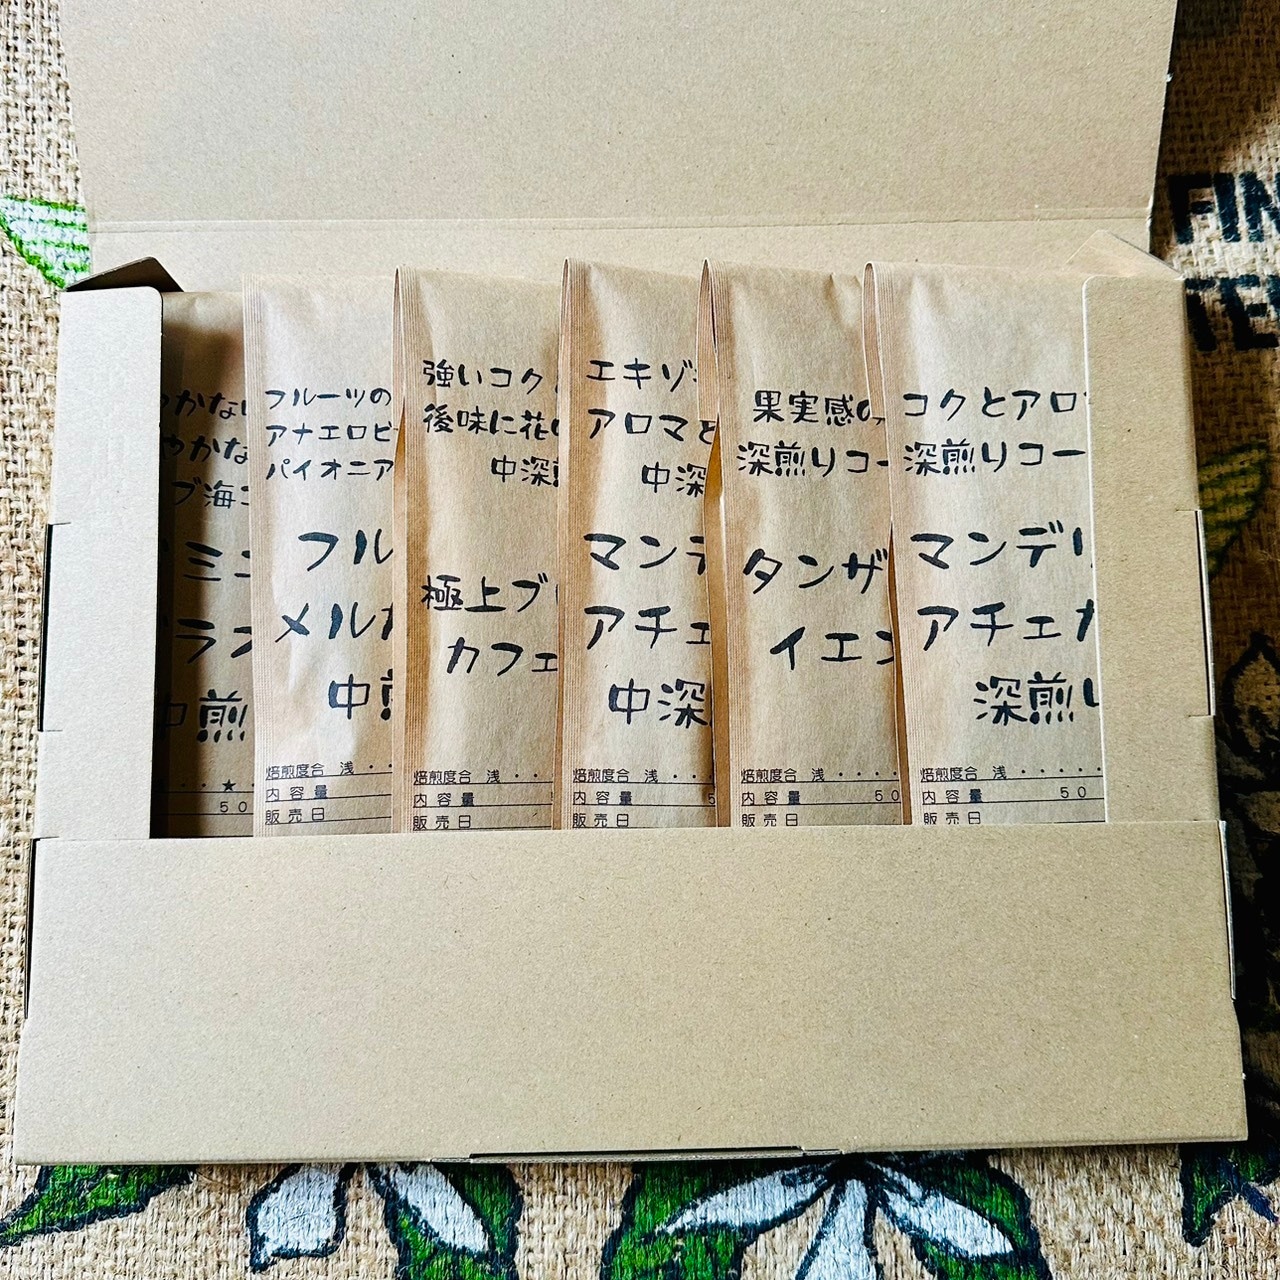 かない
やかな
ブ海
ミニ
ラス
中煎
・・★・
50
フルーツの
アナエロビ
パイオニア
フル
メルカ
中煎
焙煎度合 浅・・
内容量
販売日
強いコク
後味に花
中深
極上ブ
カフェ
焙煎度合 浅・・
内容量
販売日
エキゾ
アロマと
中深
マンデ
アチェ
中深
焙煎度合 浅・・・
内容量 5
販売日
果実感の
深煎りコー
タンザ
イエン
焙煎度合 浅・・・・
内容量 50
販売日
コクとアロ
深煎りコー
マンデリ
アチェガ
深煎り
焙煎度合 浅・・・・
内容量 50
販売日
FIN
TE